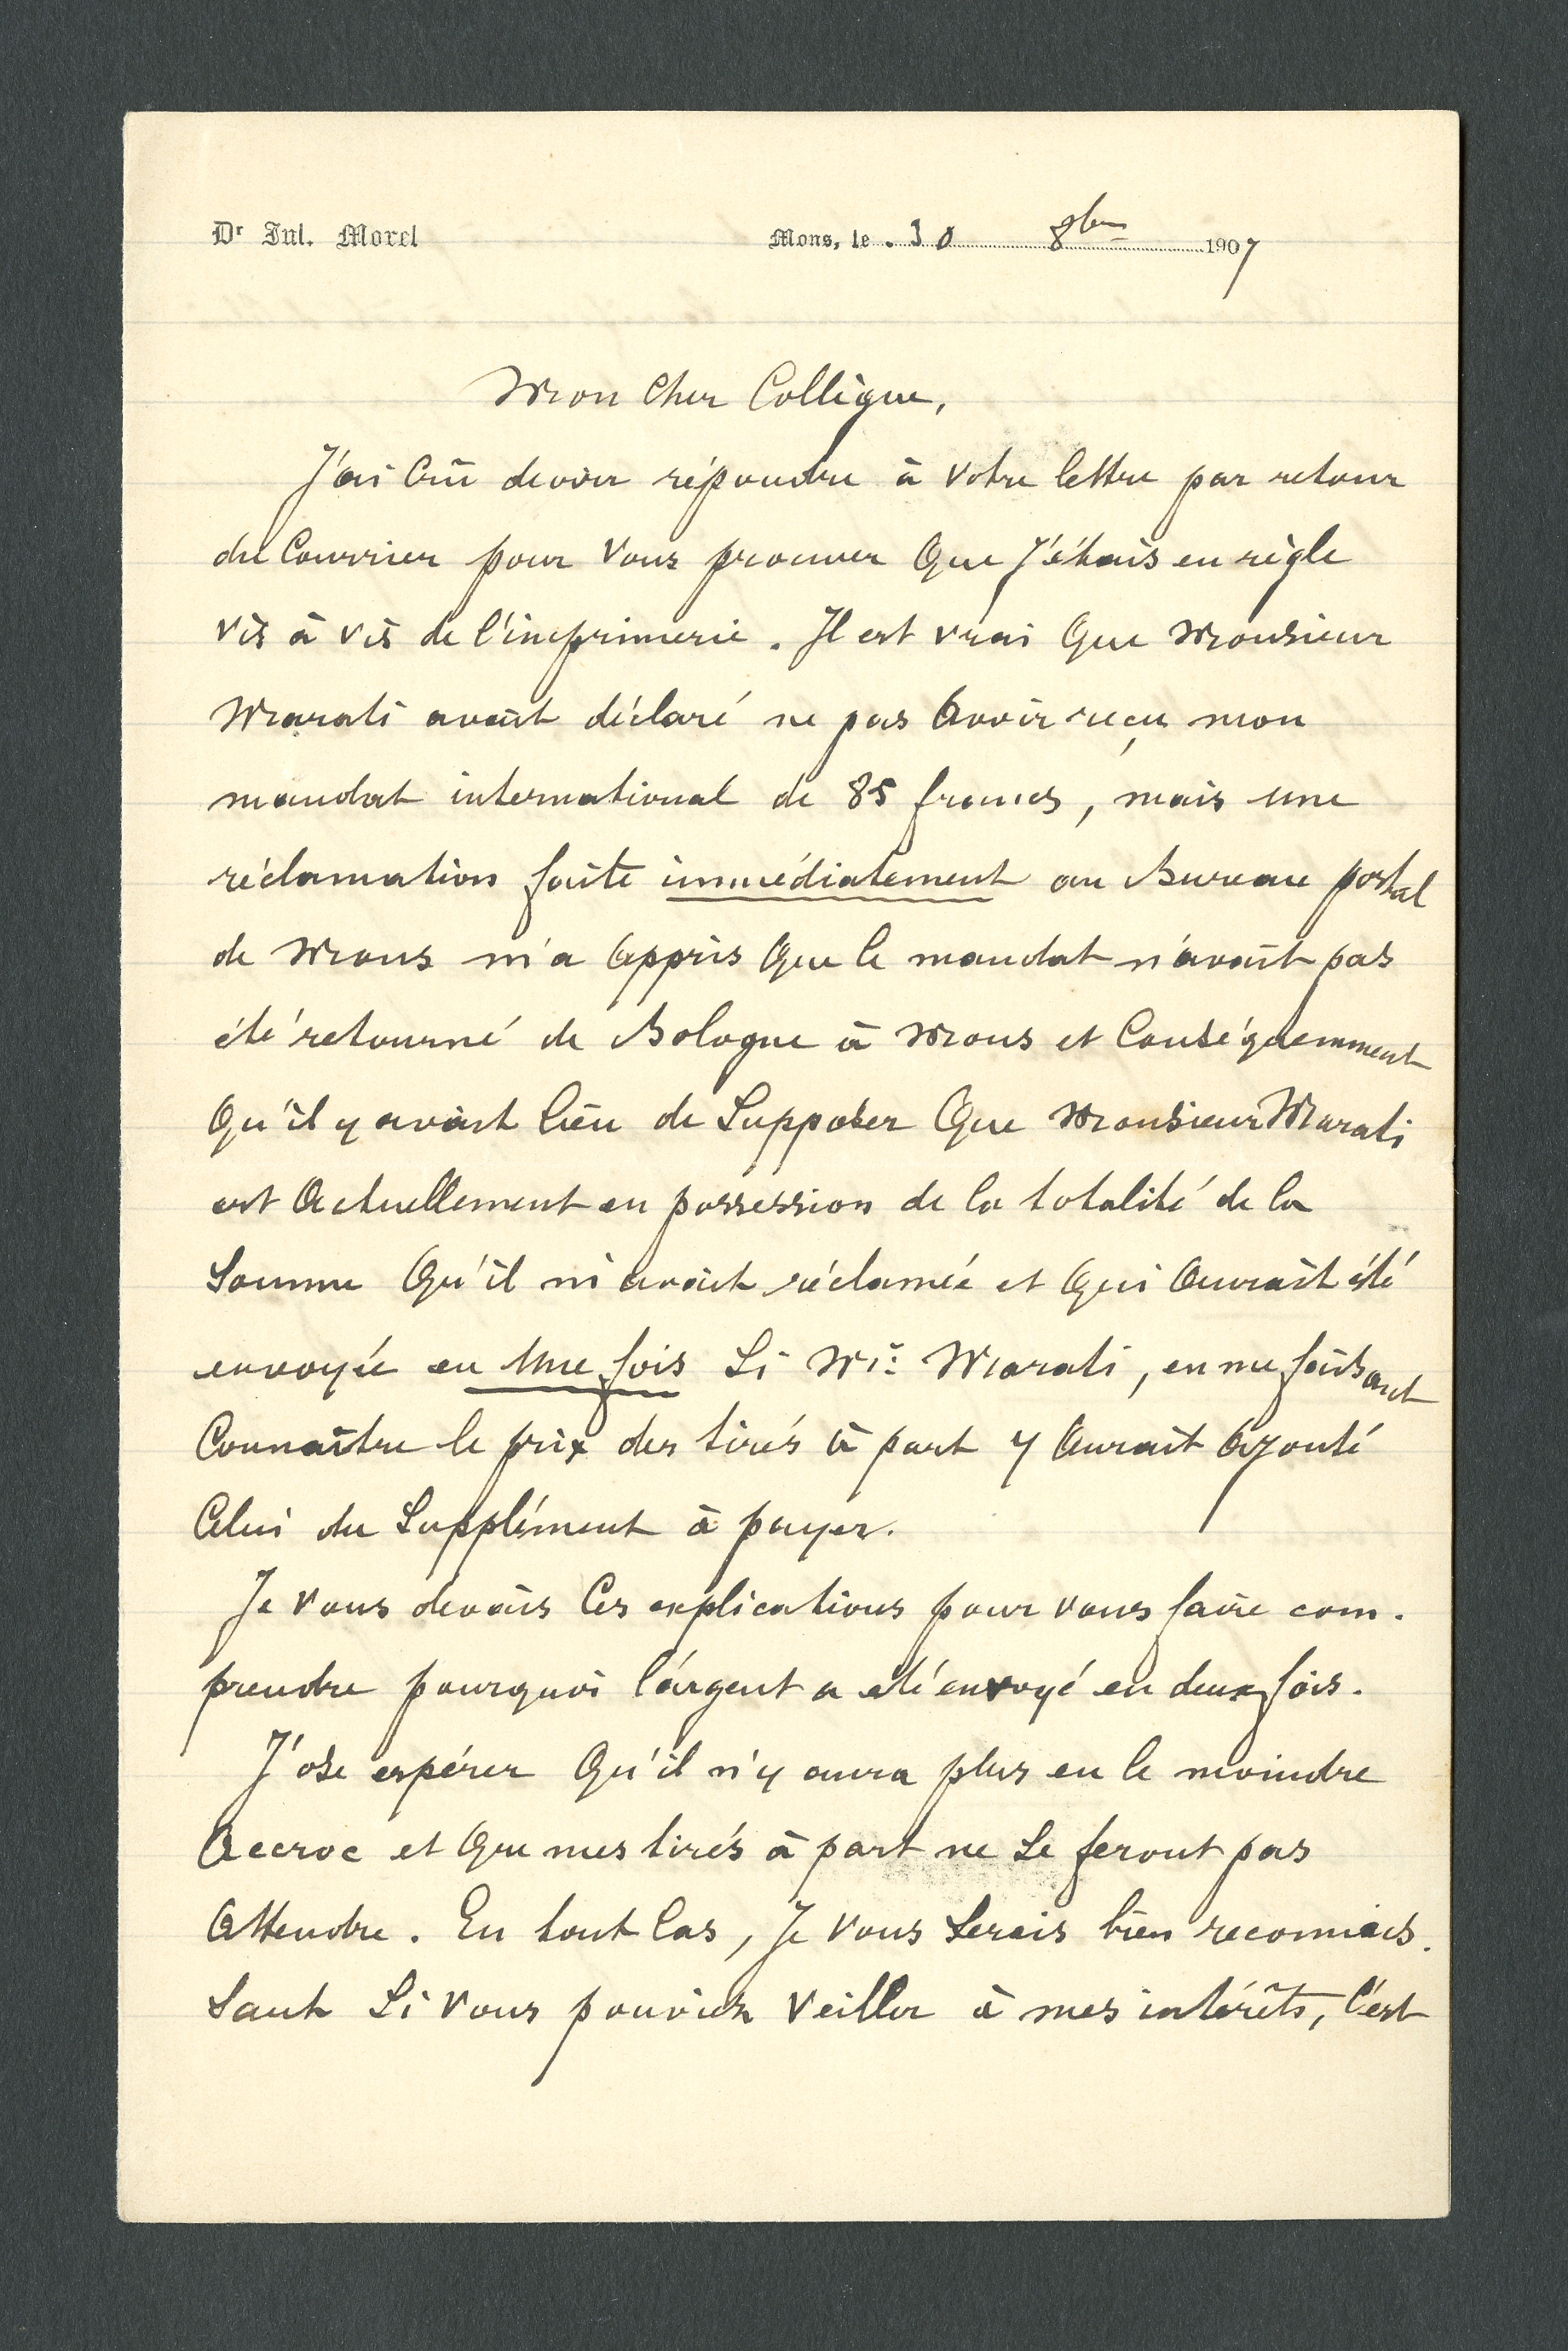 Dr Jul. Morel Mons, le 30 8bre 1907
Mon cher Collègue,
J'ai crû devoir répondre à votre lettre par retour
du Courrier pour vous prouver que j'étais en règle
vis à vis de l'imprimerie. Il est vrai que Monsieur
Marati avait déclaré ne pas avoir reçu mon
mandat international de 85 francs, mais une
réclamation faite immédiatement au Bureau postal
de Mons m'a appris que le mandat n'avait pas
été retourné de Bologne à Mons et conséquemment
qu'il y avait lieu de supposer que Monsieur Marati
est actuellement en possession de la totalité de la
somme qu'il m'avait réclamée et qui aurait été
envoyée en une fois si Mr. Marati, en me faisant
connaître le prix des tirés à part y aurait ajouté
celui du supplément à payer.
Je vous devais ces explications pour vous faire com-
prendre pourquoi l'argent a été envoyé en deux fois.
J'ose espérer qu'il n'y aura plus eu le moindre
accroc et que mes tirés à part ne se feront pas
attendre. En tout cas, je vous serais bien reconnais-
sant si vous pouviez veiller à mes intérêts, c'est